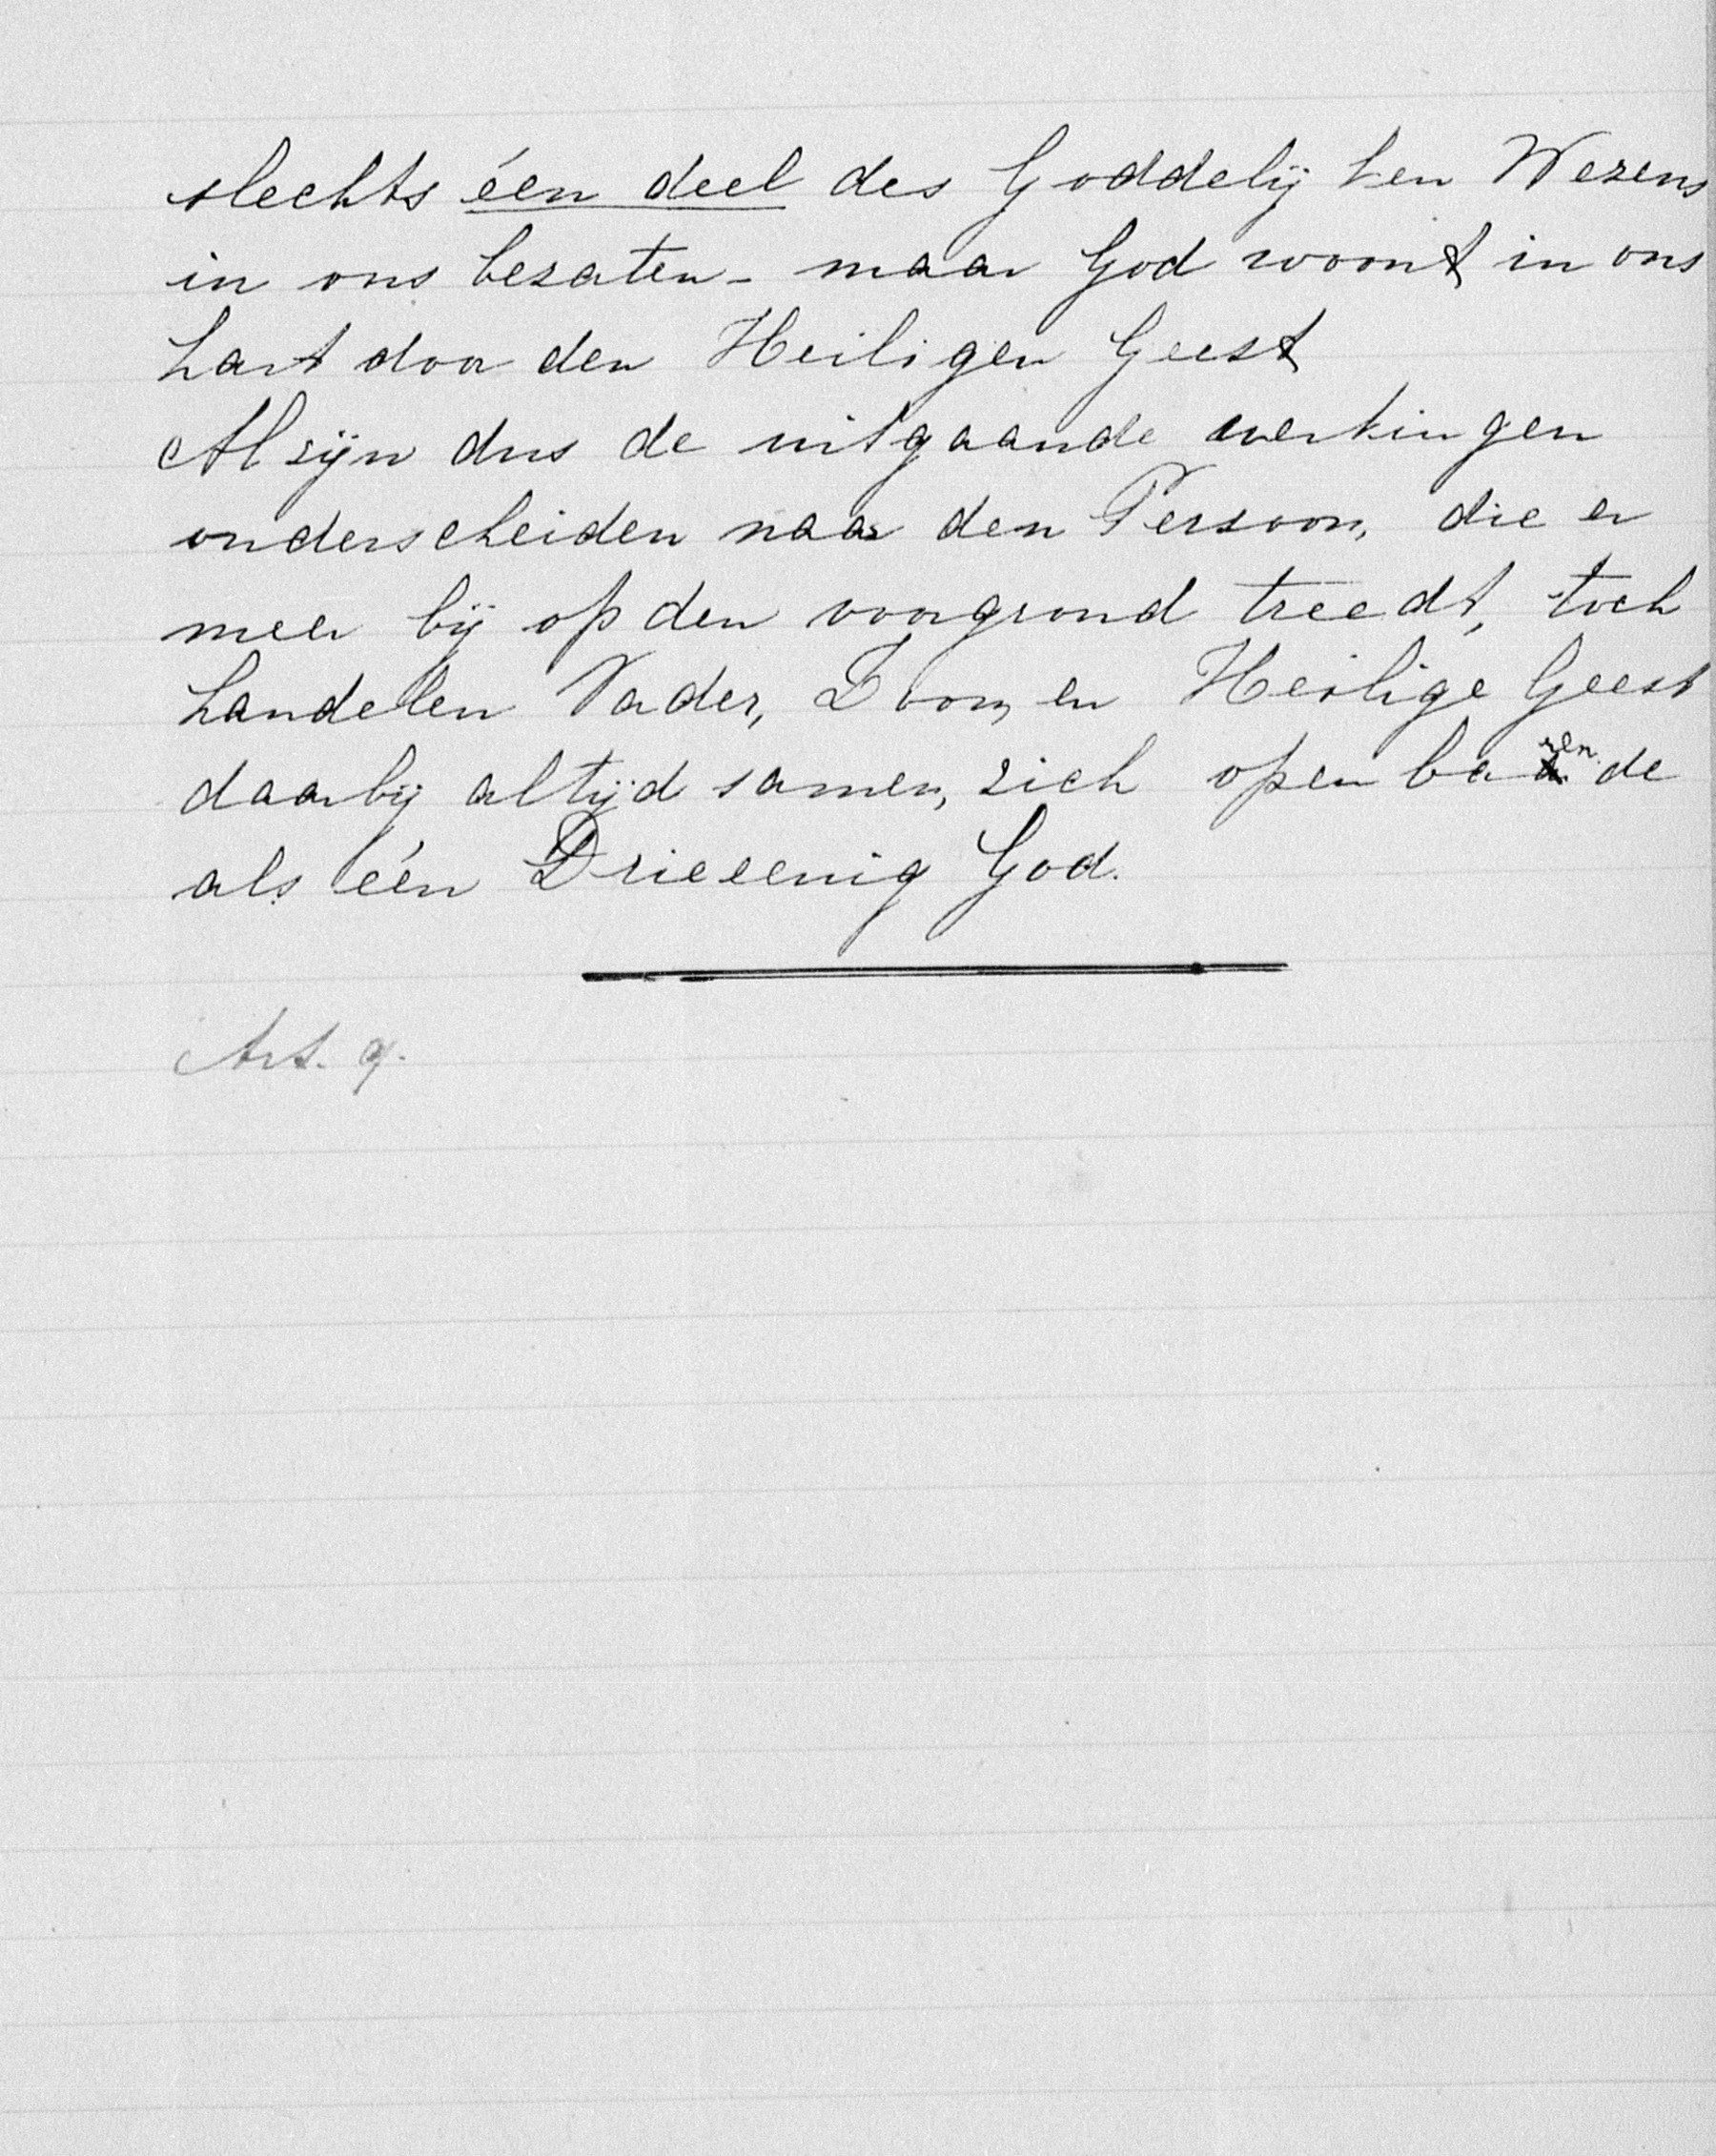 slechts één deel des Goddelijken Wezens
in ons bezaten - maar God woont in ons
hart door den Heiligen Geest
Al zijn dus de uitgaande werkingen
onderscheiden naar den Persoon, die er
meer bij op den voorgrond treedt, toch
handelen Vader, Zoon, en Heilige Geest
daarbij altijd samen, zich openbarende
als één Drieeenig God.
Art. 9.